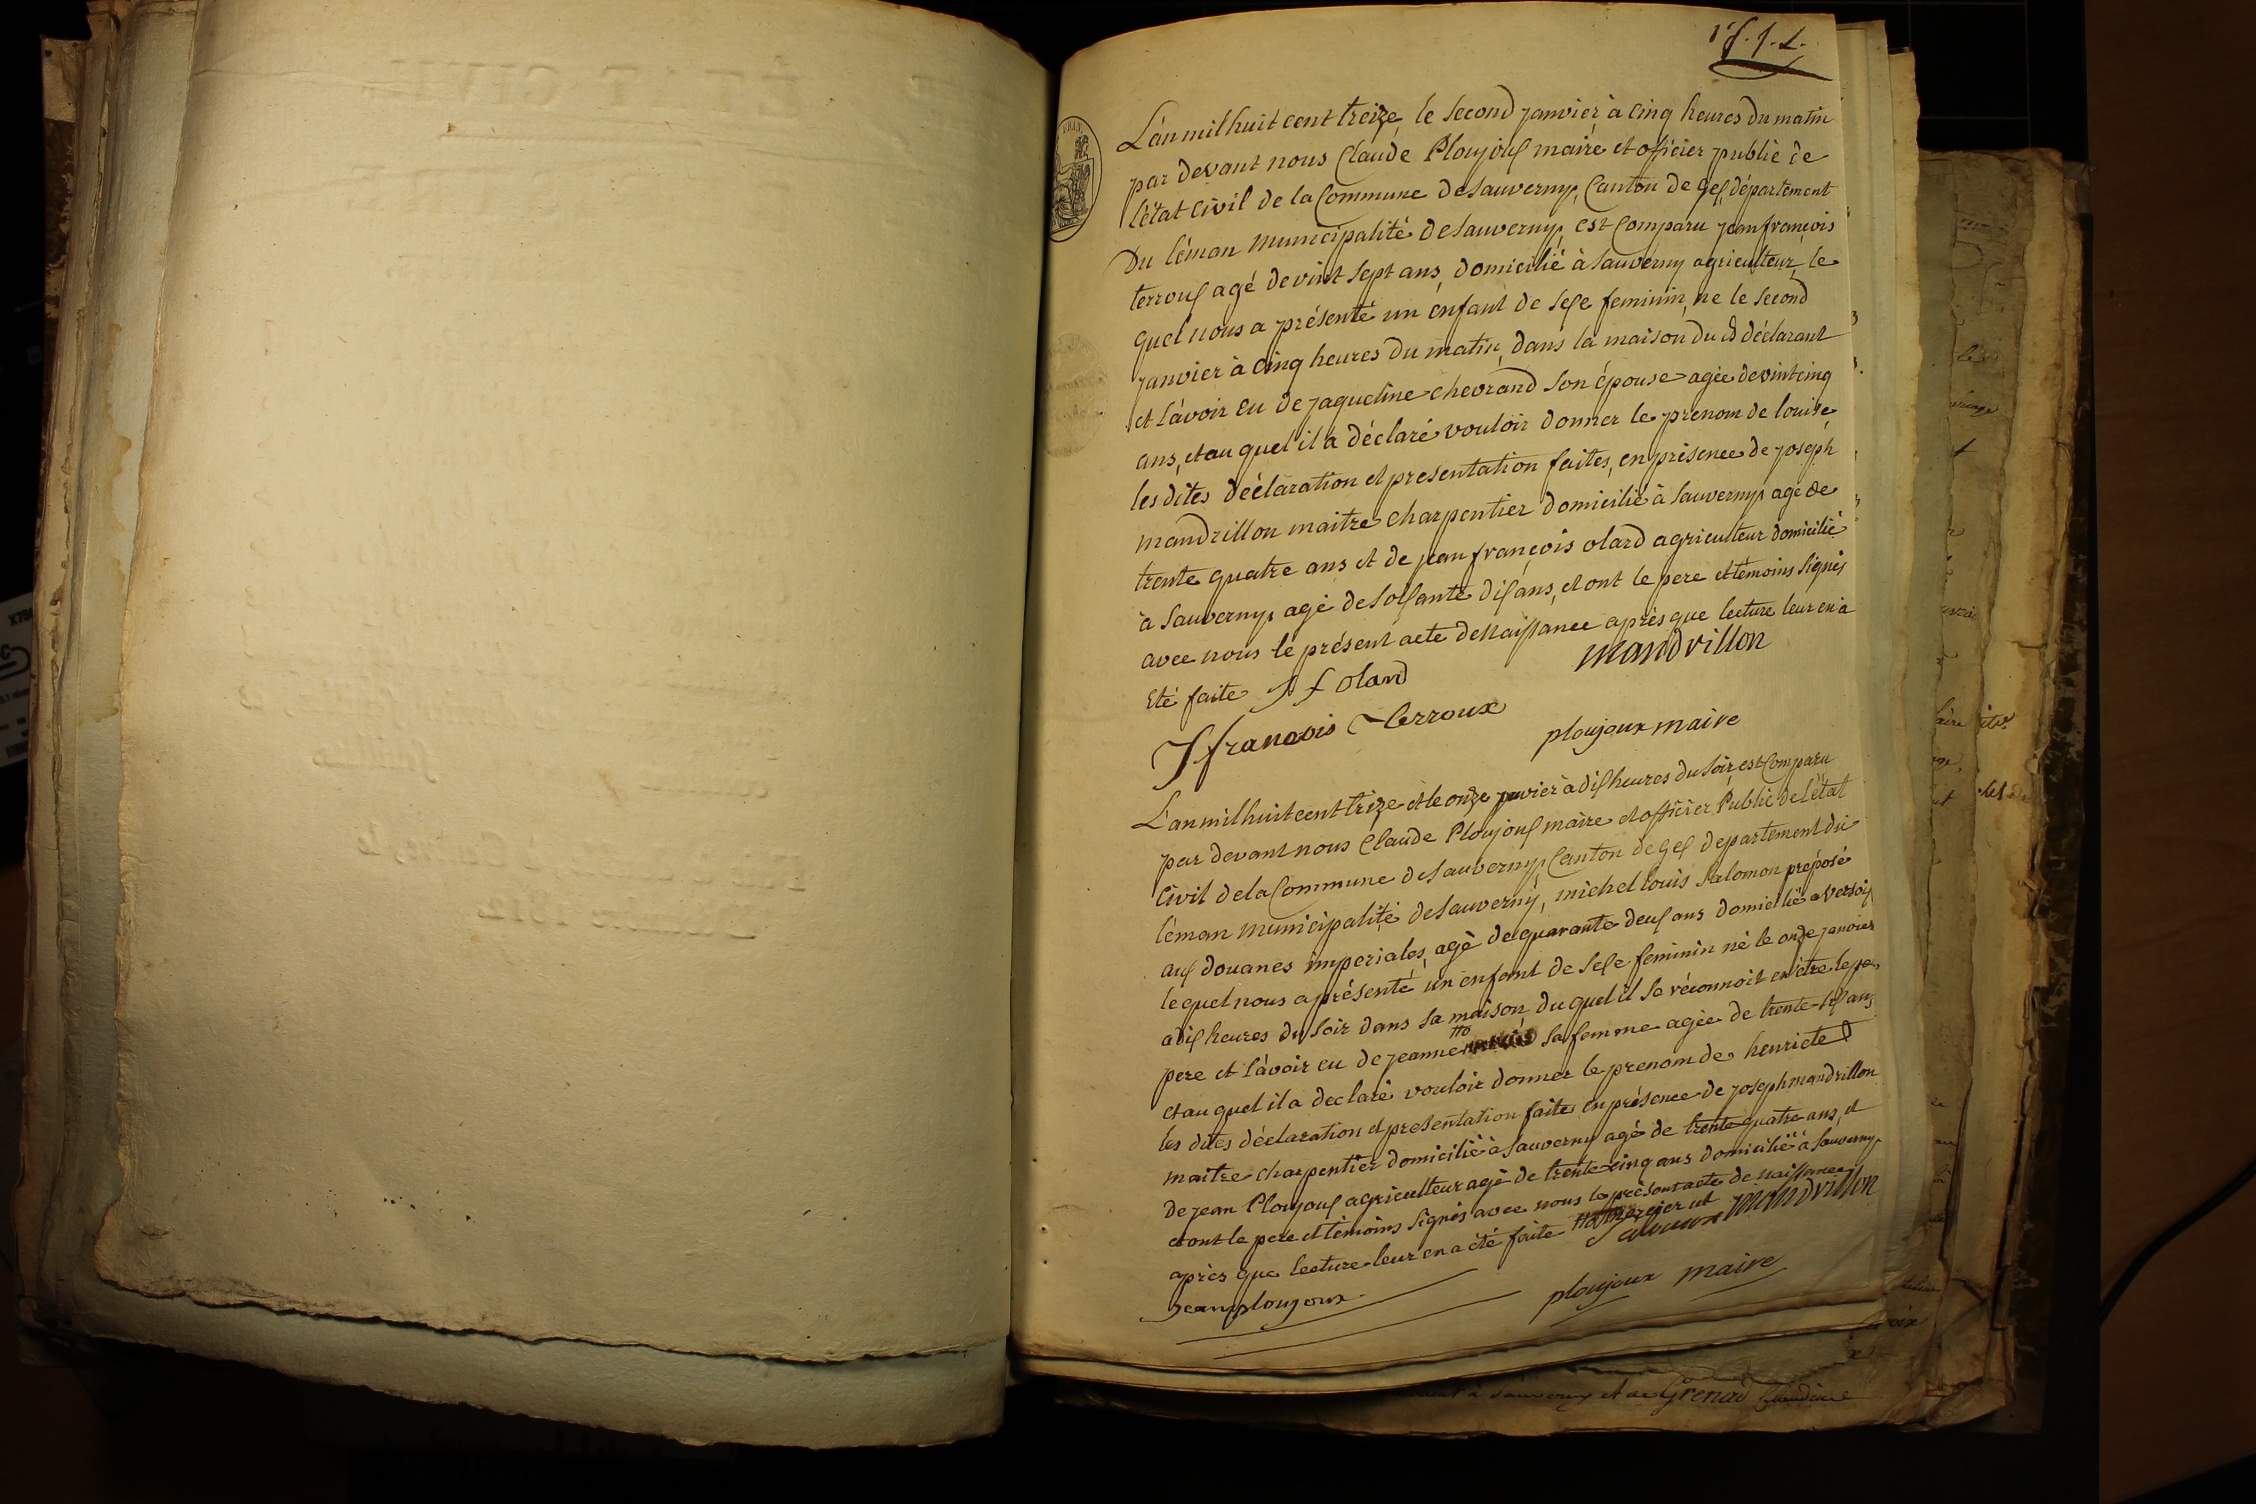 L'an mil huit cent treize, le second janvier à cinq heures du matin
par devant nous Claude Ploujoux maire et officier public de
l'état civil de la Commune de Sauverny, Canton de Gex, département
Du léman municipalité de Sauverny, est Comparu jean françois
terroux agé de vint sept ans, domicilié à Sauverny agriculteur, le
quel nous a présenté un enfant de sexe feminin, ne le second
janvier à cinq heures du matin, dans la maison du d déclarant
et l'avoir eu de jaqueline chevrand son épouse agée de vint cinq
ans, et au quel il a déclaré vouloir donner le prenom de louise,
les dites déclaration et presentation faites, en présence de joseph
mandrillon maitre charpentier domicilié à Sauverny agé de
trente quatre ans et de jean françois olard agriculteur domicilié
à Sauverny, agé de soixante dix ans, et ont le pere et témoins signés
avec nous le présent acte de naissance après que lecture leur en a
été faite J f olard mandrillon
J francois Terroux
ploujoux maire
L'an mil huit cent trize et le onze janvier à dix heures du soir est Comparu
par devant nous Claude Ploujoux maire et officier Public de l'état
Civil de la Commune de Sauverny, Canton de Gex departement du
léman municipalité de Sauverny, michel louis Salomon préposé
aux douanes imperiales, agé de quarante deux ans domicilié a versoix
le quel nous a présenté un enfant de sexe feminin né le onze janvier
a dix heures du soir dans sa maison du quel il se réconnoit en être le pe,
pere et l'avoir eu de jeanne sa femme agée de trente-six ans
et au quel il a declaré vouloir donner le prenom de henriete
les dites déclaration et presentation faites en présence de joseph mandrillon
maitre charpentier domicilié à Sauverny agé de trente quatre ans, et
de jean Ploujoux agriculteur agé de trente cinq ans domicilié à Sauverny
et ont le pere et témoins signés avec nous le présent acte de naissance
après que lecture leur en a été faite mandrillon
jean ploujoux
ploujoux maire